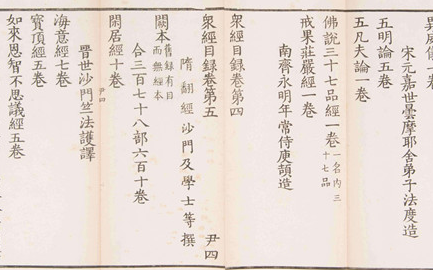 異威儀一卷
宋元嘉世曇摩耶舍弟子法度造
五明論五卷
五凡夫論一卷
佛說三十七品經一卷 一名內三十七品
戒果莊嚴經一卷
南齊永明年常侍庾頡造
衆經目錄卷第四
衆經目錄卷第五 尹四
隋翻經沙門及學士等撰
闕本 舊錄有目而無經本
合三百七十八部六百十卷
閑居經十卷
尹四
晉世沙門竺法護譯
海意經七卷
寶頂經五卷
如來恩智不思議經五卷